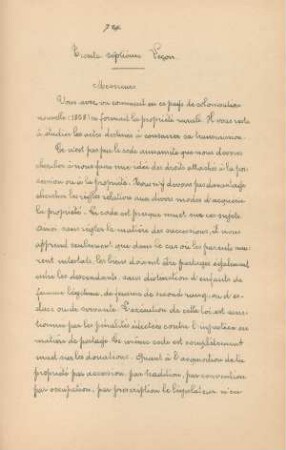 Trente septième Leçon.
Messieurs
Vous avez vu comment en ce pays de colonisation
nouvelle (1858) se formait la propriété rurale. Il vous reste
à étudier les actes destinés à constater sa transmission.
Ce n'est pas par le code annamite que nous devons
chercher à nous faire une idée des droits attachés à la pos-
session ou à la propriété. Nous n'y devons pas davantage
chercher les règles relatives aux divers modes d'acquérir
la propriété. Ce code est presque muet sur ce sujet.
Ainsi sans régler la matière des successions, il nous
apprend seulement que dans le cas où les parents meu-
rent intestats, les biens doivent être partagés également
entre les descendants, sans distinction d'enfants de
femmes légitimes, de femmes de second rang, ou d'es-
claves ou de servante. L'exécution de cette loi est sanc-
tionnée par les pénalités édictées contre l'injustice en
matière de partage. Le même code est complètement
muet sur les donations. Quant à l'acquisition de la
propriété par accession, par tradition, par convention
par occupation, par prescription le législateur n'en